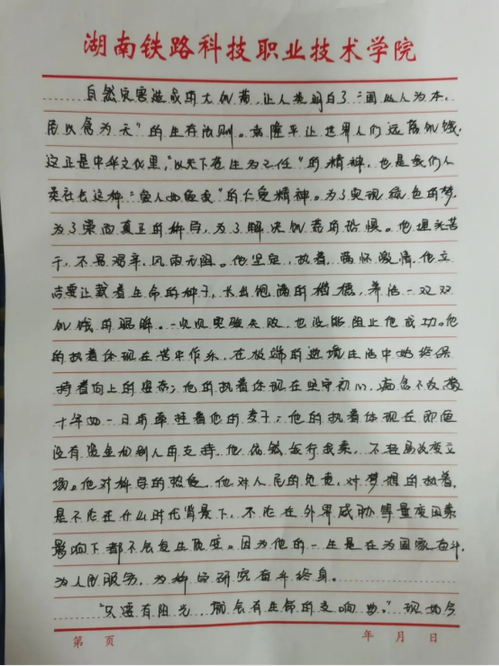 湖南铁路科技职业技术学院
自然灾害造成的大饥荒,让人类明白了"国以人为本,
民以食为天"的生存法则。袁隆平让世界人们远离饥饿,
这正是中华文化里,"以天下苍生为己任"的精神,也是我们人
类社会这种"爱人如爱我"的大爱精神。为了实现绿色的梦,
为了荣而真正的种易,为了解决饥荒的恐惧。他埋头苦
干,不畏艰辛,风雨无阻。他坚定,执着,满怀激情,他立
志要让载着生命的种子,长出饱满的稻穗,养活一双双
饥饿的眼睛。一次次实验失败,也没能阻止他成功。他
的执着体现在苦中作乐,在极端的逆境生活中始终保
持着向上的姿态;他的执着体现在坚守初心,痛苦不改,数
十年如一日的牵挂着他的麦子;他的执着体现在即使
没有资金和别人的支持,他依然饭行我素,不轻易改变立
场。他对科学的热爱,他对人民的负责,对梦想的执着,
是不论在什么时代背景下,不论在外界威胁等量变因素
影响下都不会发生质变。因为他的一生是在为国家奋斗,
为人民服务,为种的研究奋斗终身。
"只要有阳光,就会有生命的交响曲。"现如今
第 页 年 月 日